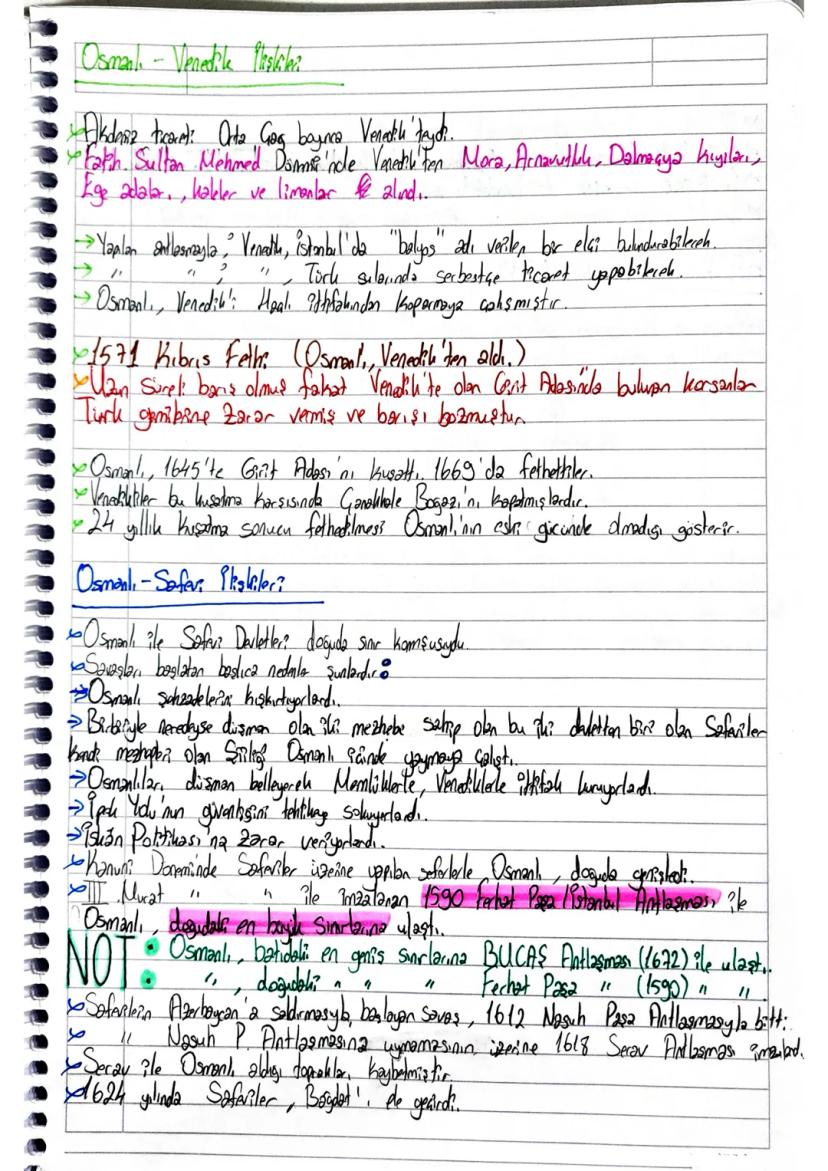 Osmanlı - Venedik İlişkileri
Akdeniz ticareti Orta Çağ boyunca Venedik'teydi.
Fatih Sultan Mehmed Dönemi'nde Venedik'ten Mora, Arnavutluk, Dalmaçya kıyıları,
Ege adaları, kaleler ve limanlar alındı.
→ Yapılan antlaşmayla; Venedik, İstanbul'da "balyos" adı verilen bir elçi bulundurabilecek.
→ " " ; " , Türk sularında serbestçe ticaret yapabilecek.
→ Osmanlı, Venedik'i Haçlı ittifakından koparmaya çalışmıştır.
1571 Kıbrıs Fethi (Osmanlı, Venedik'ten aldı.)
Uzun süreli barış olmuş fakat Venedik'te olan Girit Adasında bulunan korsanlar
Türk gemilerine zarar vermiş ve barışı bozmuştur.
Osmanlı, 1645'te Girit Adası'nı kuşattı, 1669'da fethettiler.
Venedikliler bu kuşatma karşısında Çanakkale Boğazı'nı kapatmışlardır.
24 yıllık kuşatma sonucu fethedilmesi Osmanlı'nın eski gücünde olmadığı gösterir.
Osmanlı-Safevi İlişkileri
Osmanlı ile Safevi Devletleri doğuda sınır komşusuydu.
Savaşları başlatan başlıca nedenler şunlardır:
→ Osmanlı şehzadelerini kışkırtıyorlardı.
→ Birbiriyle neredeyse düşman olan iki mezhebe sahip olan bu iki devletten biri olan Safeviler
kendi mezhepleri olan Şiiliği Osmanlı içinde yaymaya çalıştı.
→ Osmanlıları düşman belleyerek Memlüklerle, Venediklerle ittifak kuruyorlardı.
→ İpek Yolu'nun güvenliğini tehlikeye sokuyorlardı.
→ İskân Politikası'na zarar veriyorlardı.
Kanuni Döneminde Safeviler üzerine yapılan seferlerle Osmanlı, doğuda genişledi.
III. Murat " " ile imzalanan 1590 Ferhat Paşa/İstanbul Antlaşması ile
Osmanlı, doğudaki en büyük sınırlarına ulaştı.
NOT: • Osmanlı, batıdaki en geniş sınırlarına BUCAŞ Antlaşması (1672) ile ulaştı.
• " , doğudaki " " " Ferhat Paşa " (1590) " "
Safevilerin Azerbaycan'a saldırmasıyla başlayan savaş, 1612 Nasuh Paşa Antlaşmasıyla bitti.
" Nasuh P. Antlaşmasına uymamasının üzerine 1618 Serav Antlaşması imzalandı.
Serav ile Osmanlı aldığı toprakları kaybetmiştir.
1624 yılında Safeviler, Bağdat'ı ele geçirdi.